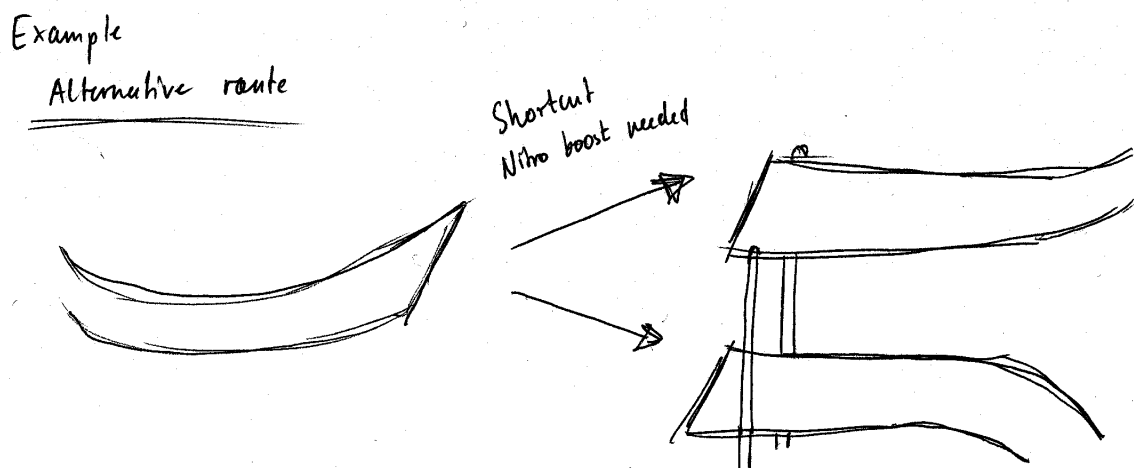 Example
Alternative route
Shortcut
Nitro boost needed